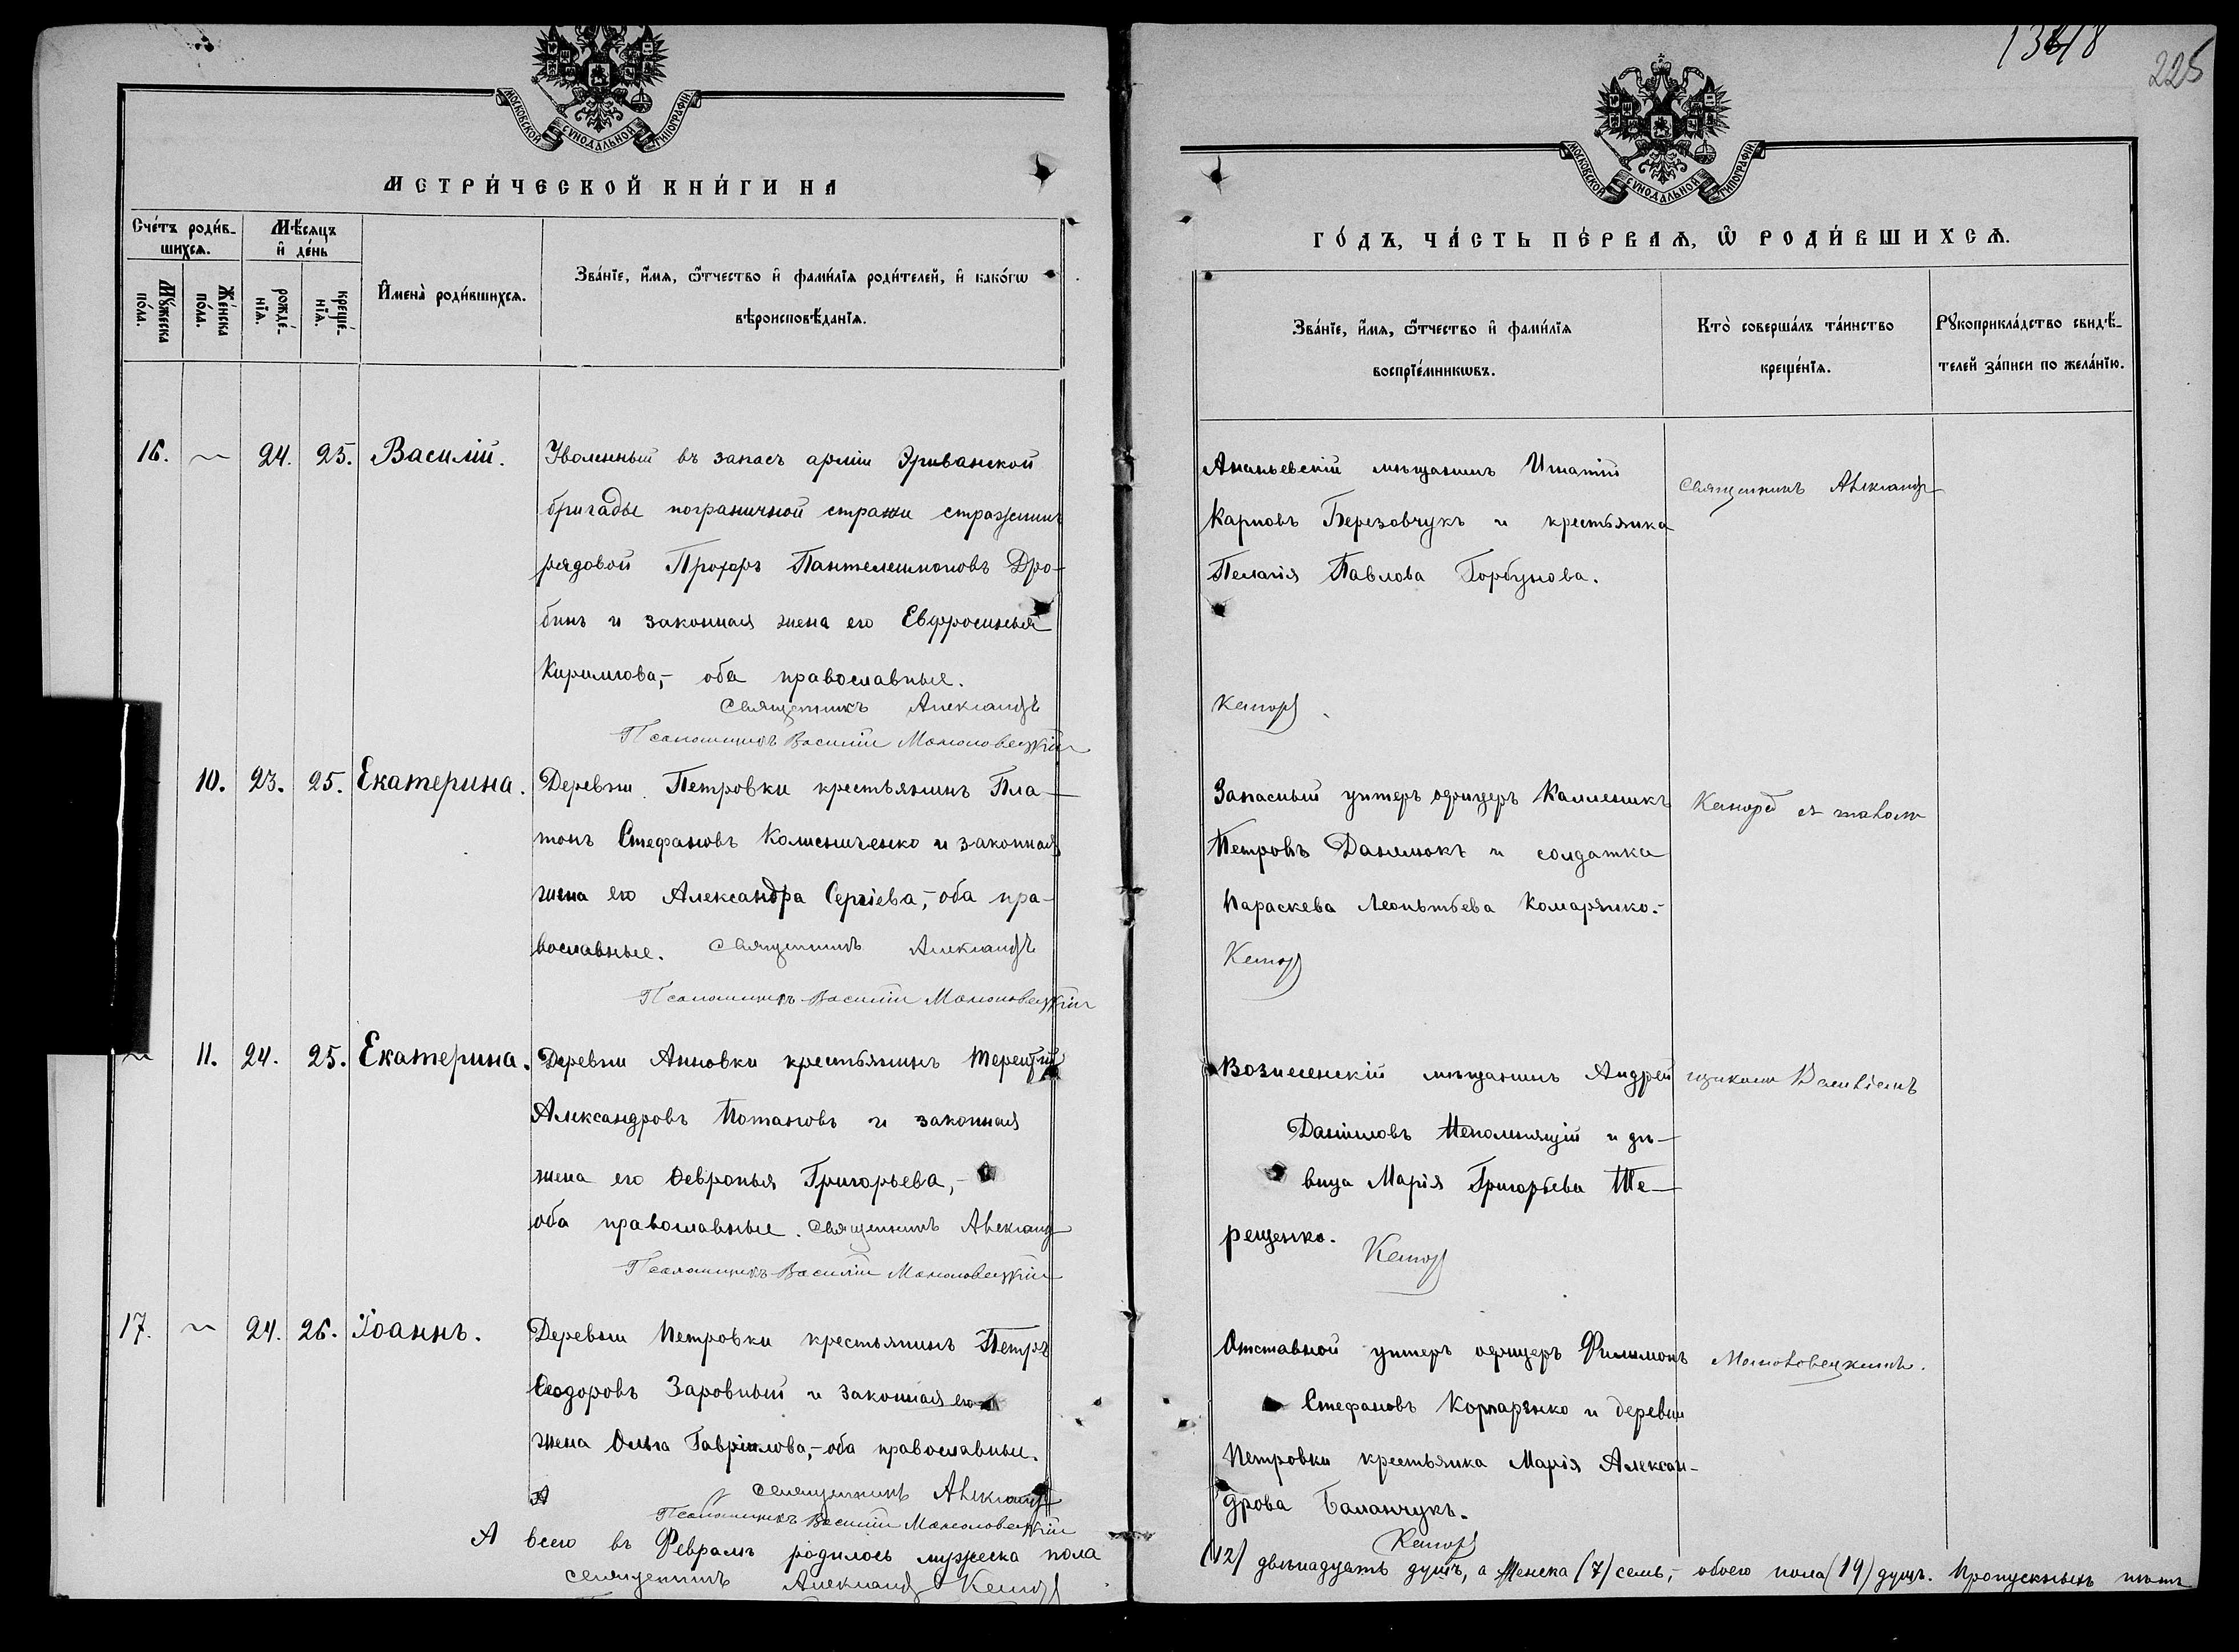 1318
225
МОСКОВСКОЙ СѴНОДАЛЬНОЙ ТИПОГРАФІИ
МЕТРИ́ЧЕСКОЙ КНИ́ГИ НА
Сче́тъ роди́в-
шихсѧ.
Мѣ́сѧцъ
и҆ де́нь
Мꙋ́жеска
по́ла.
Же́нска
по́ла.
рожде́-
нїѧ.
креще́-
нїѧ.
И҆мена̀ роди́вшихсѧ.
Зва́нїе, и҆́мѧ, ѻ҆́тчество и҆ фами́лїѧ роди́телей, и҆ како́гѡ
вѣроисповѣ́данїѧ.
16. ~ 24. 25. Василій.
Уволенный въ запасъ арміи Эриванской
бригады пограничной стражи стражникъ
рядовой Прохоръ Пантелеимоновъ Дро-
бинъ и законная жена его Евфросинья
Кириллова,- оба православные.
Священникъ Александръ
Псаломщикъ Василій Маньковецкій
10. 23. 25. Екатерина.
Деревни Петровки крестьянинъ Пла-
тонъ Стефановъ Колисниченко и законная
жена его Александра Сергіева,- оба пра-
вославные. Священникъ Александръ
Псаломщикъ Василій Маньковецкій
~ 11. 24. 25. Екатерина.
Деревни Анновки крестьянинъ Терентій
Александровъ Потаповъ и законная
жена его Февронья Григорьева,-
оба православные. Священникъ Александръ
Псаломщикъ Василій Маньковецкій
17. ~ 24. 26. Іоаннъ.
Деревни Петровки крестьянинъ Петръ
Ѳеодоровъ Заровный и законная его
жена Ольга Гавріилова,- оба православные.
Священникъ Александръ
Псаломщикъ Василій Маньковецкій
А всего въ Февралѣ родилось мужеска пола
Священникъ Александръ
МОСКОВСКОЙ СѴНОДАЛЬНОЙ ТИПОГРАФІИ
ГО́ДЪ, ЧА́СТЬ ПЕ́РВАѦ, Ѽ РОДИ́ВШИХСѦ.
Зва́нїе, и҆́мѧ, ѻ҆́тчество и҆ фами́лїѧ
воспрїе́мникѡвъ.
Кто̀ соверша́лъ та́инство
креще́нїѧ.
Рꙋкоприкла́дство свидѣ́-
телей за́писи по жела́нїю.
Ананьевскій мѣщанинъ Игнатій
Карповъ Березовчукъ и крестьянка
Пелагія Павлова Горбунова.
Священникъ Александръ
Запасный унтеръ офицеръ Каллиникъ
Петровъ Данилюкъ и солдатка
Параскева Леонтьева Комаренко.-
Вознесенскій мѣщанинъ Андрей
Даніиловъ Непомнящій и дѣ-
вица Марія Григорьева Те-
рещенко.
Отставной унтеръ офицеръ Филимонъ
Стефановъ Комаренко и деревни
Петровки крестьянка Марія Алексан-
дрова Баланчукъ.
Маньковецкимъ.
(12) двѣнадцать душъ, а женска (7) семь,- обоего пола (19) душъ. Пропускныхъ нѣтъ